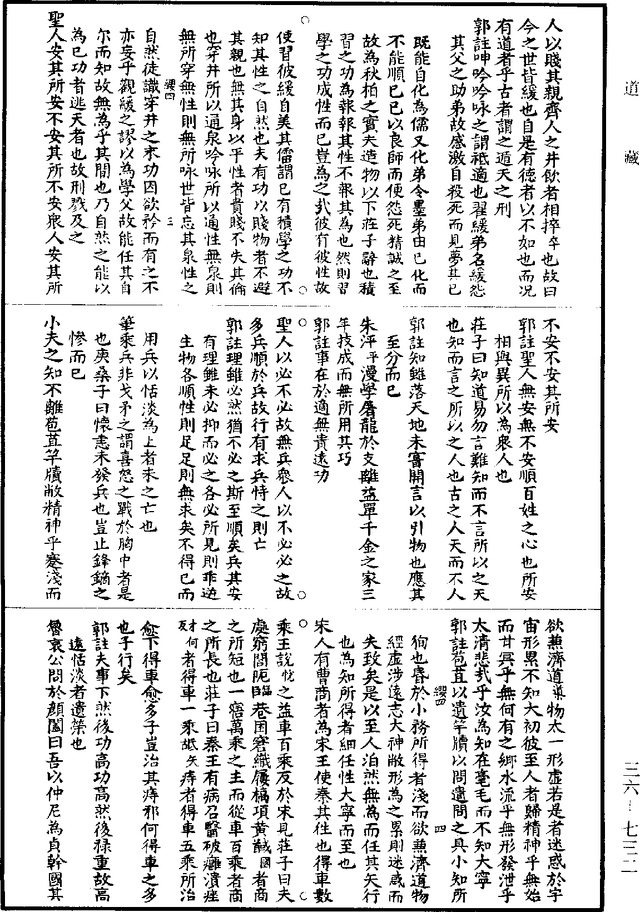 道藏
人以賤其親齊人之井飲者相捽也故曰
今之世皆緩也自是有德者以不如也而况
有道者乎古者謂之遁天之刑
郭註呻吟吟咏之謂祗適也翟緩弟名緩怨
其父之助弟故感激自殺死而見夢其已
既能自化為儒又化弟令墨弟由已化而
不能順已已以良師而便怨死精誠之至
故為秋柏之實夫造物以下莊子辭也積
習之功為報報其性不報其為也然則習
學之功成性而已豈為之哉彼有彼性故
使習彼緩自美其儒謂已有積學之功不
知其性之自然也夫有功以賤物者不避
其親也無其身以平性者貴賤不失其倫
也穿井所以通泉吟咏所以通性無泉則
無所穿無性則無所咏世皆忘其泉性之
纓四 三
自然徒識穿井之末功因欲矜而有之不
亦妄乎觀緩之謬以為學父故能任其自
尔而知故無為乎其間也乃自然之能以
為已功者逃天者也故刑戮及之
聖人安其所安不安其所不安衆人安其所
不安不安其所安
郭註聖人無安無不安順百姓之心也所安
相與異所以為衆人也
莊子曰知道易勿言難知而不言所以之天
也知而言之所以之人也古之人天而不人
郭註知雖落天地未嘗開言以引物也應其
至分而已
朱泙平漫學屠龍於支離益單千金之家三
年技成而無所用其巧
郭註事在於適無貴遠功
聖人以必不必故無兵衆人以不必必之故
多兵順於兵故行有求兵恃之則亡
郭註理雖必然猶不必之斯至順矣兵其安
有理雖未必抑而必之各必所見則乖逆
生物各順性則足足則無求矣不得已而
用兵以恬淡為上者未之亡也
筆乘兵非戈矛之謂喜怒之戰於胸中者是
也庚桑子曰懷恚未發兵也豈止鋒鏑之
慘而已
小夫之知不離苞苴竿牘敝精神乎蹇淺而
欲兼濟道導物太一形虛若是者迷惑於宇
宙形累不知大初彼至人者歸精神乎無始
而甘冥乎無何有之鄉水流乎無形發泄乎
太清悲哉乎汝為知在毫毛而不知大寧
郭註苞苴以遺竿牘以問遺問之具小知所
纓四 四
徇也昏於小務所得者淺而欲兼濟道物
經虛涉遠志大神敝形為之累則迷惑而
失致矣是以至人泊然無為而任其天行
也為知所得者細任性大寧而至也
宋人有曹商者為宋王使秦其往也得車數
乘王說悅之益車百乘反於宋見莊子曰夫
處窮閭阨巷困窘織屨槁項黃馘者商
之所短也一寤萬乘之主而從車百乘者商
之所長也莊子曰秦王有病召醫破癰潰痤
者得車一乘舐矢痔者得車五乘所治
愈下得車愈多子豈治其痔邪何得車之多
也子行矣
郭註夫事下然後功高功高然後祿重故高
遠恬淡者遺榮也
魯哀公問於顏闔曰吾以仲尼為貞幹國其
三六-七三二